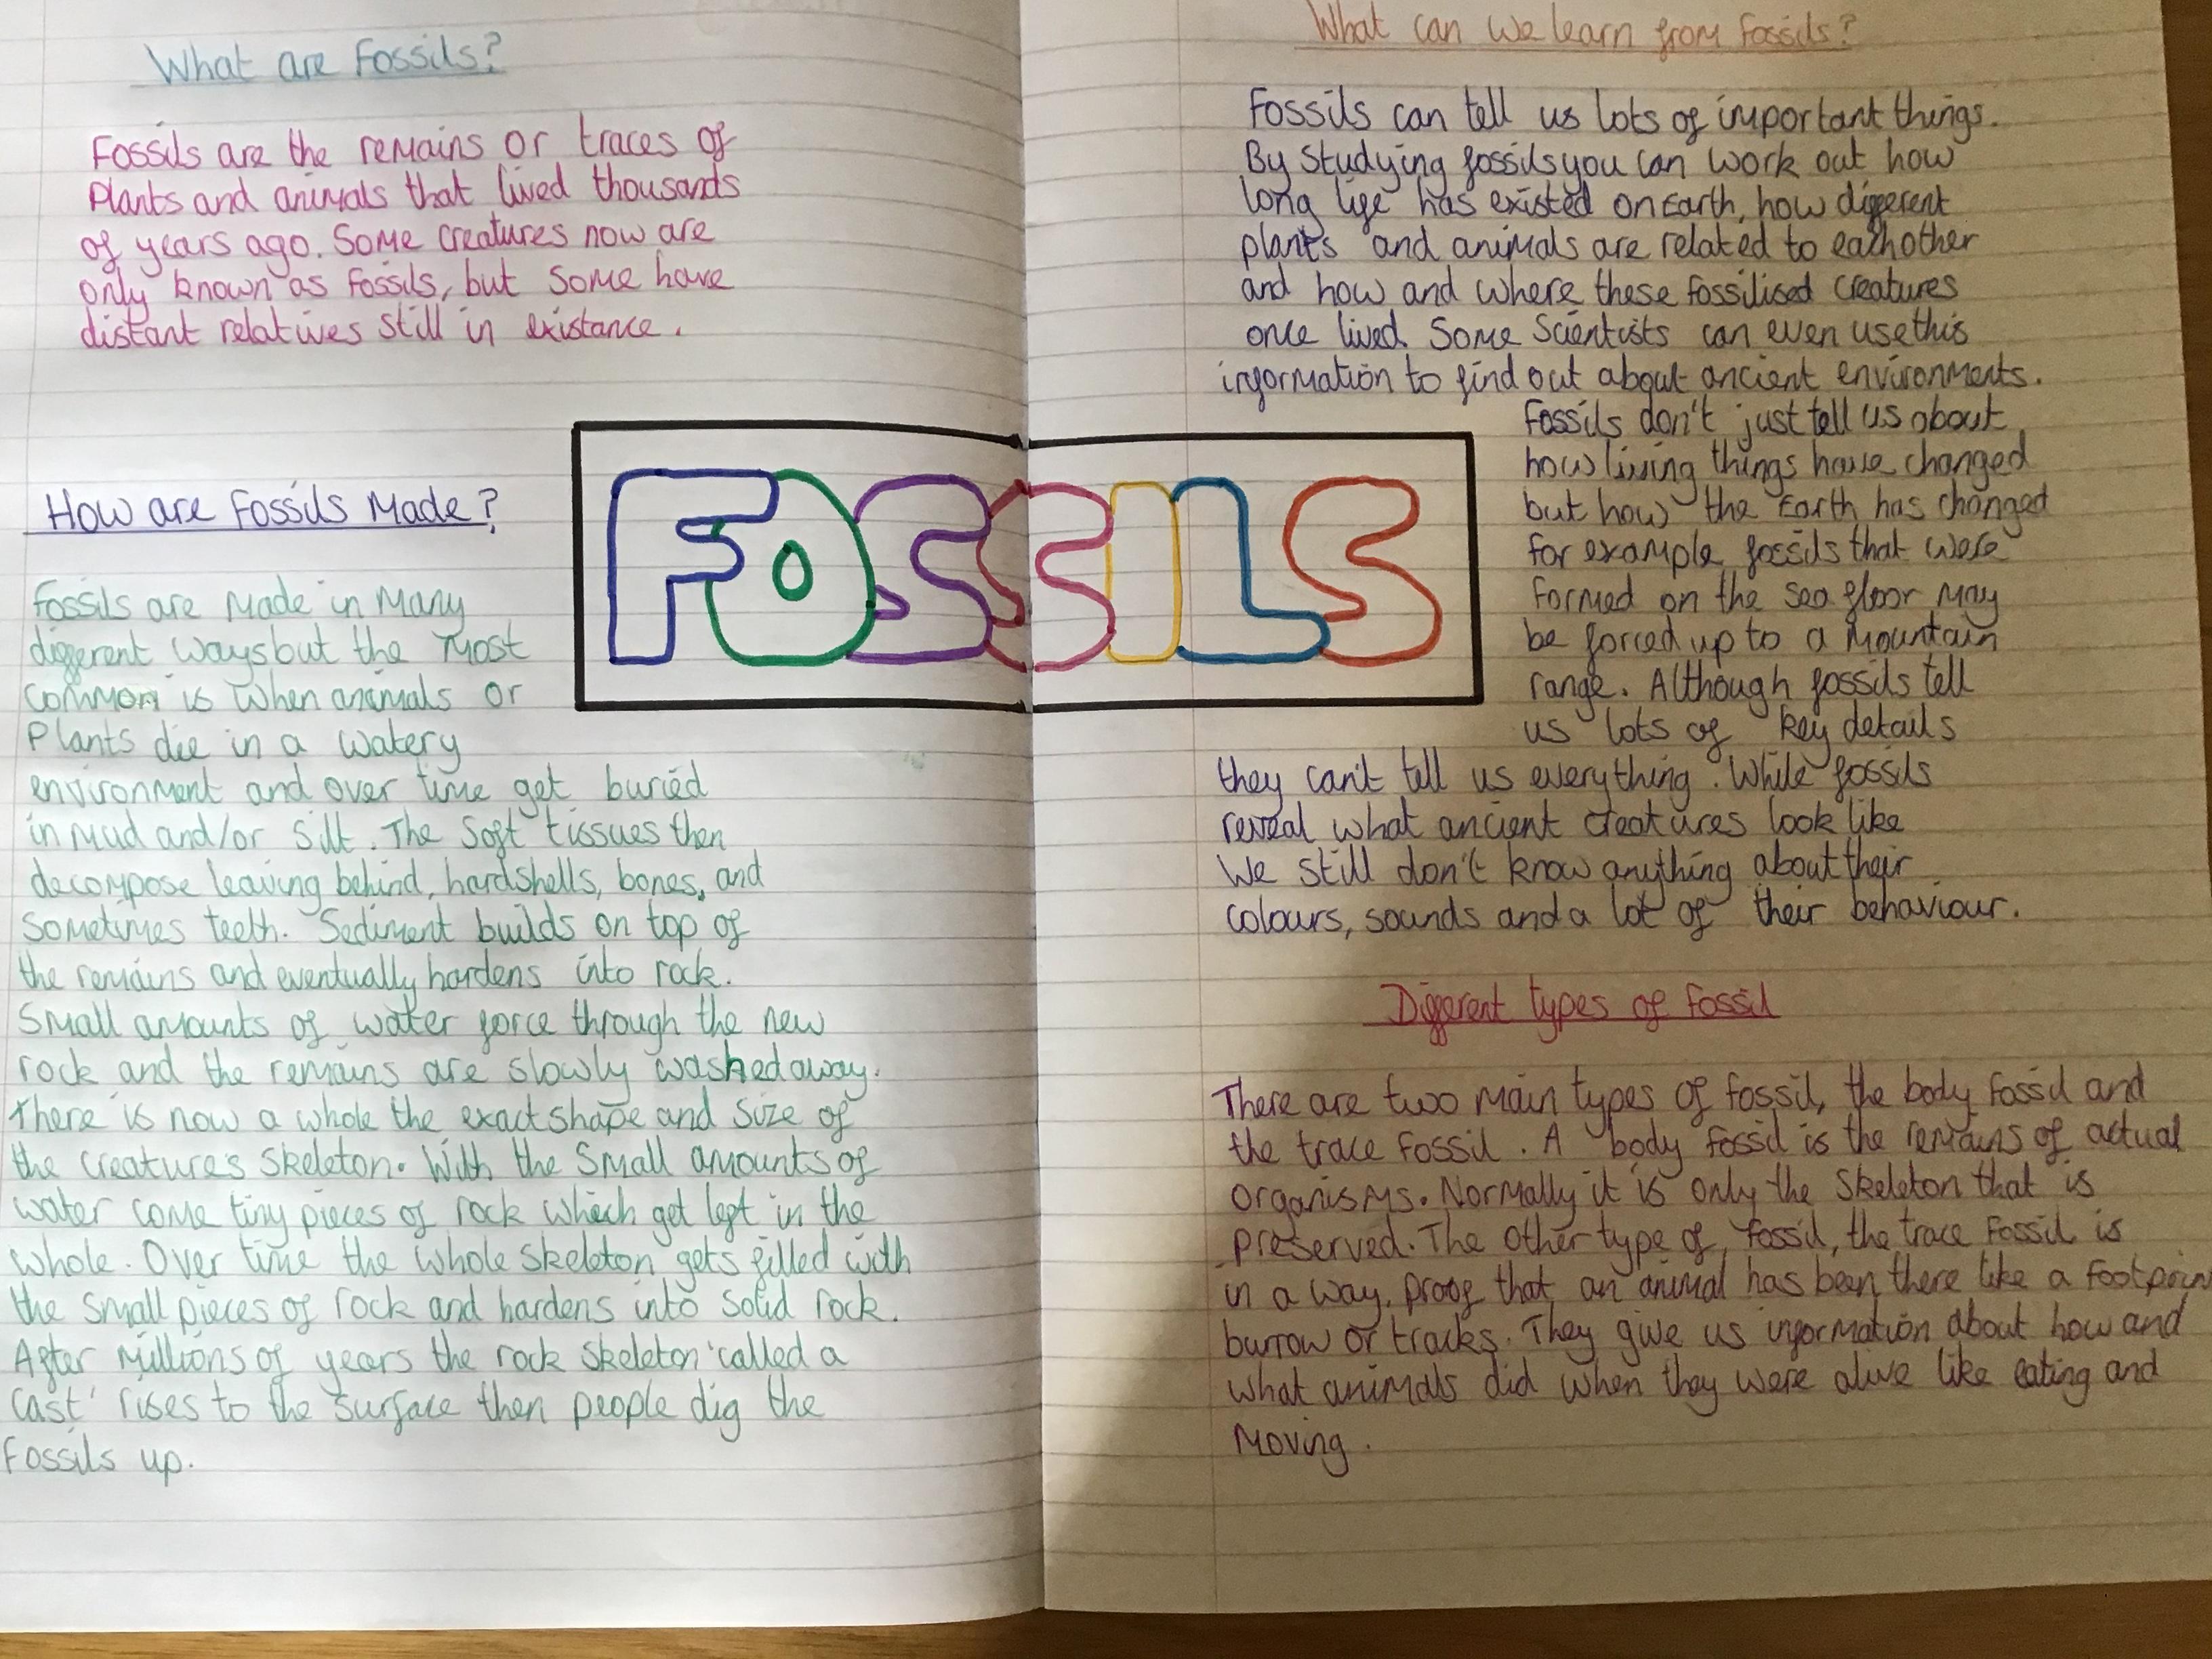 What are Fossils?
Fossils are the remains or traces of
Plants and animals that lived thousands
of years ago. Some creatures now are
only known as fossils, but some have
distant relatives still in existance.
How are Fossils Made?
Fossils are made in many
different ways but the most
common is when animals or
Plants die in a watery
environment and over time get buried
in mud and/or silt. The soft tissues then
decompose leaving behind, hardshells, bones, and
sometimes teeth. Sediment builds on top of
the remains and eventually hardens into rock.
Small amounts of water force through the new
rock and the remains are slowly washed away.
There is now a whole the exact shape and size of
the creature's skeleton. With the small amounts of
water come tiny pieces of rock which get left in the
whole. Over time the whole skeleton gets filled with
the small pieces of rock and hardens into solid rock.
After millions of years the rock skeleton 'called a
cast' rises to the surface then people dig the
Fossils up.
FOSSILS
What can we learn from fossils?
Fossils can tell us lots of important things.
By studying fossils you can work out how
long life has existed on Earth, how different
plants and animals are related to eachother
and how and where these fossilised creatures
once lived. Some scientists can even use this
information to find out about ancient environments.
Fossils don't just tell us about
how living things have changed
but how the Earth has changed
for example, fossils that were
formed on the sea floor may
be forced up to a mountain
range. Although fossils tell
us lots of key details
they can't tell us everything. While fossils
reveal what ancient creatures look like
We still don't know anything about their
colours, sounds and a lot of their behaviour.
Different types of fossil
There are two main types of fossil, the body fossil and
the trace fossil. A body fossil is the remains of actual
organisms. Normally it is only the skeleton that is
preserved. The other type of fossil, the trace fossil is
in a way, proof that an animal has been there like a footprin
burrow or tracks. They give us information about how and
what animals did when they were alive like eating and
moving.